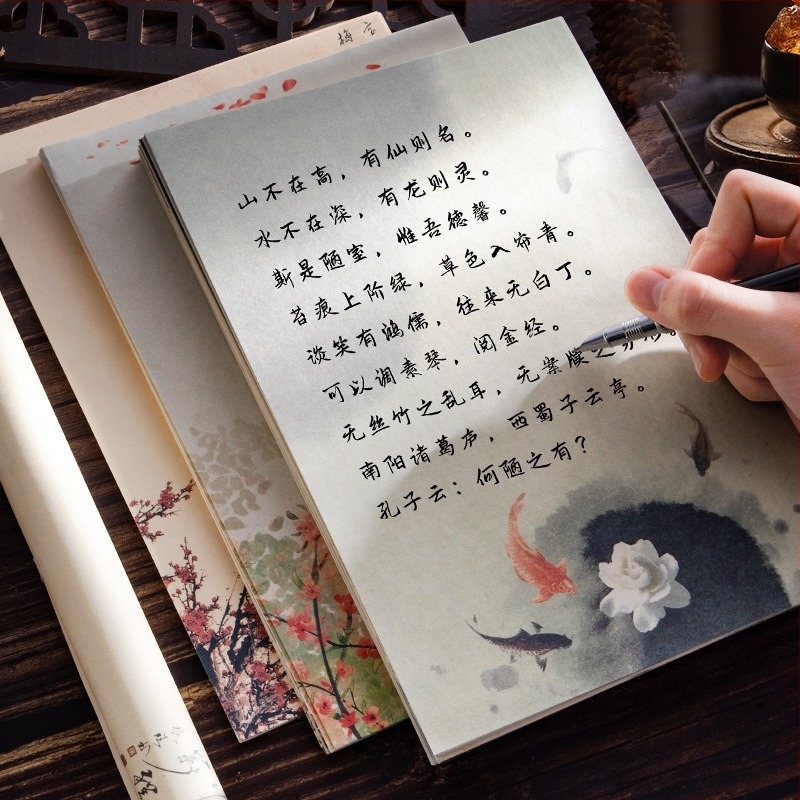 山不在高，有仙则名。
水不在深，有龙则灵。
斯是陋室，惟吾德馨。
苔痕上阶绿，草色入帘青。
谈笑有鸿儒，往来无白丁。
可以调素琴，阅金经。
无丝竹之乱耳，无案牍之劳形。
南阳诸葛庐，西蜀子云亭。
孔子云：何陋之有？